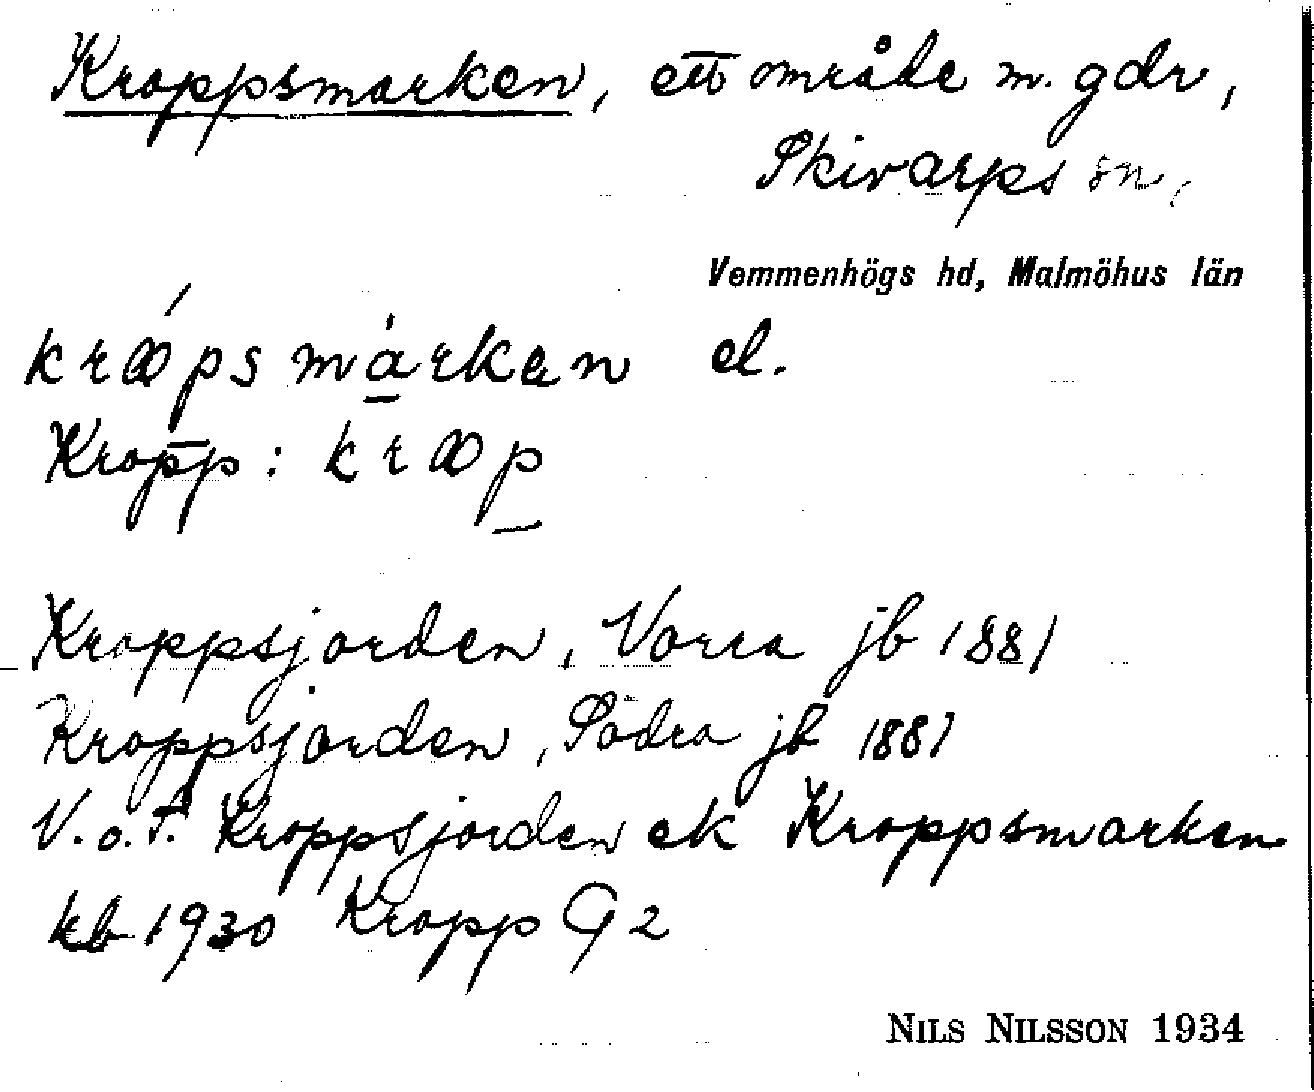 Kroppsmarken, ett område m. gdr,
Skivarps sn,
Vemmenhögs hd, Malmöhus län
el.
Kropp:
Kroppsjorden, Norra jb 1881
Kroppsjorden, Södra jb 1881
N. o. S. Kroppsjorden ek Kroppsmarken
kb 1930 Kropp G 2
NILS NILSSON 1934